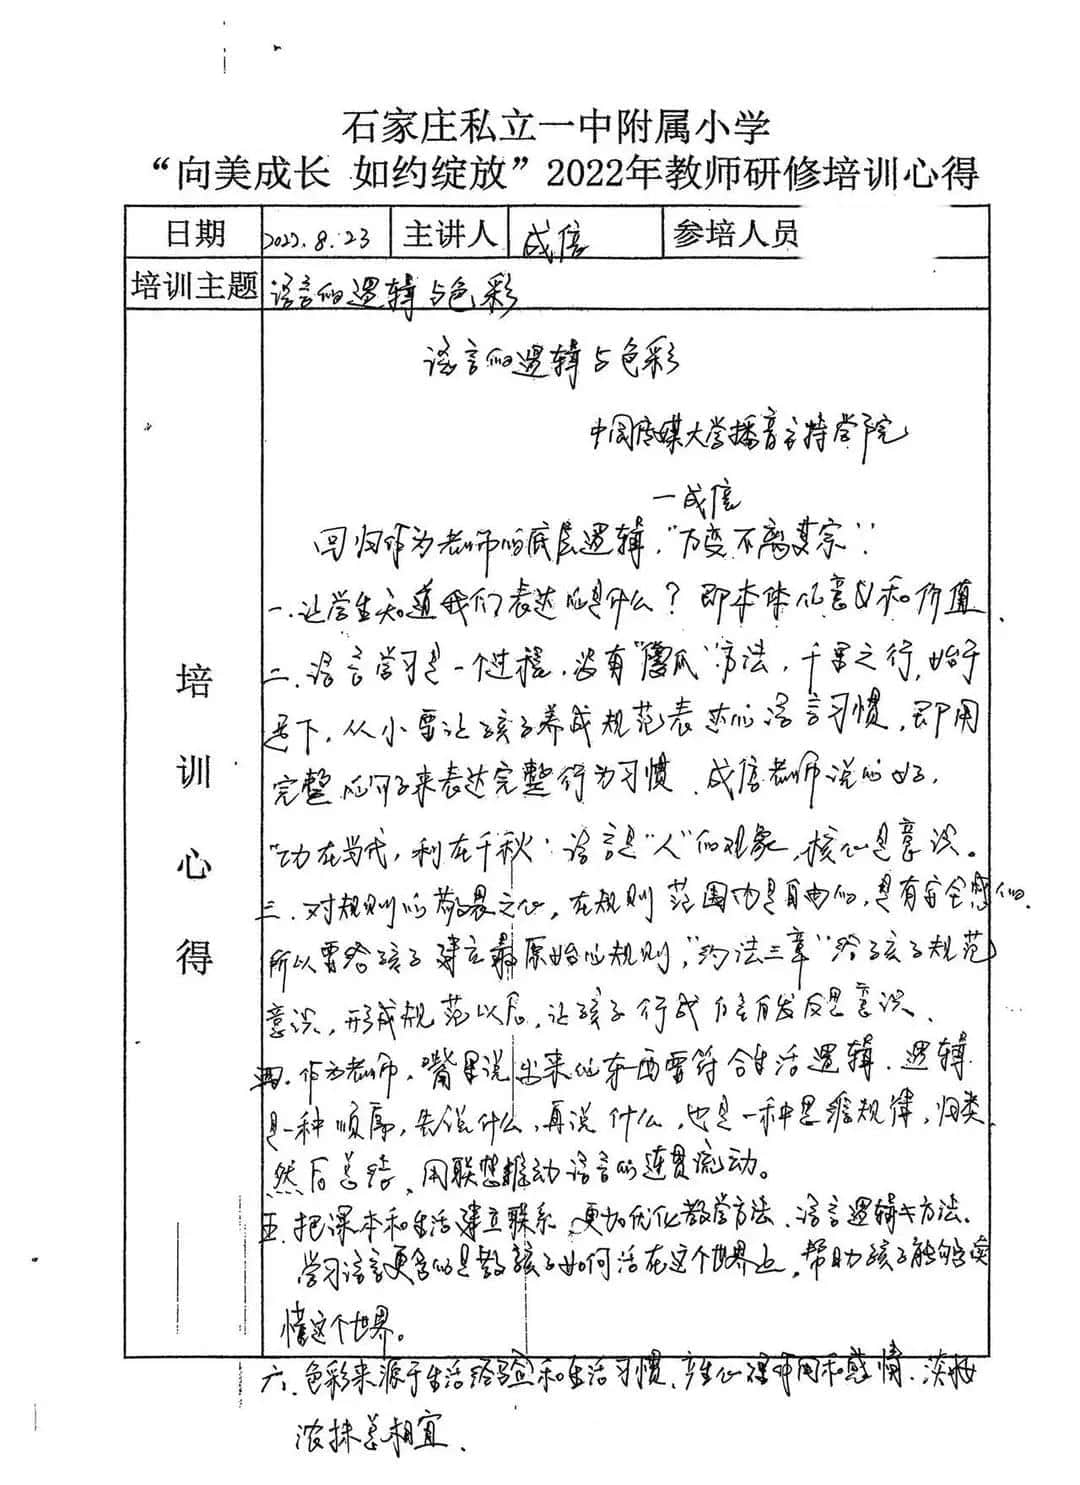 石家庄私立一中附属小学
“向美成长 如约绽放”2022年教师研修培训心得
日期 2022.8.23 主讲人 成倍 参培人员
培训主题 语言的逻辑与色彩
培训心得
语言的逻辑与色彩
中国传媒大学播音主持学院
—成倍
回归作为老师的底层逻辑，“万变不离其宗”：
一.让学生知道我们表达的是什么？即本体的意义和价值.
二.语言学习是一个过程，没有“傻瓜”方法，千里之行，始于
足下，从小要让孩子养成规范表达的语言习惯，即用
完整的句子来表达完整行为习惯.成倍老师说的好，
“功在当代，利在千秋：语言是“人”的现象，核心是意识。
三.对规则的敬畏之心，在规则范围内是自由的，是有安全感的.
所以要给孩子建立最原始的规则，“约法三章”给孩子规范
意识，形成规范以后，让孩子行成自发反思意识.
四.作为老师，嘴里说出来的东西要符合生活逻辑.逻辑
是一种顺序，先说什么，再说什么，也是一种思维规律，归类
然后总结，用联想推动语言的连贯流动。
五.把课本和生活建立联系，更加优化教学方法、语言逻辑与方法.
学习语言更多的是教孩子如何活在这个世界上，帮助孩子能够读
懂这个世界。
六.色彩来源于生活经验和生活习惯，产生心理作用和感情.淡妆
浓抹总相宜.